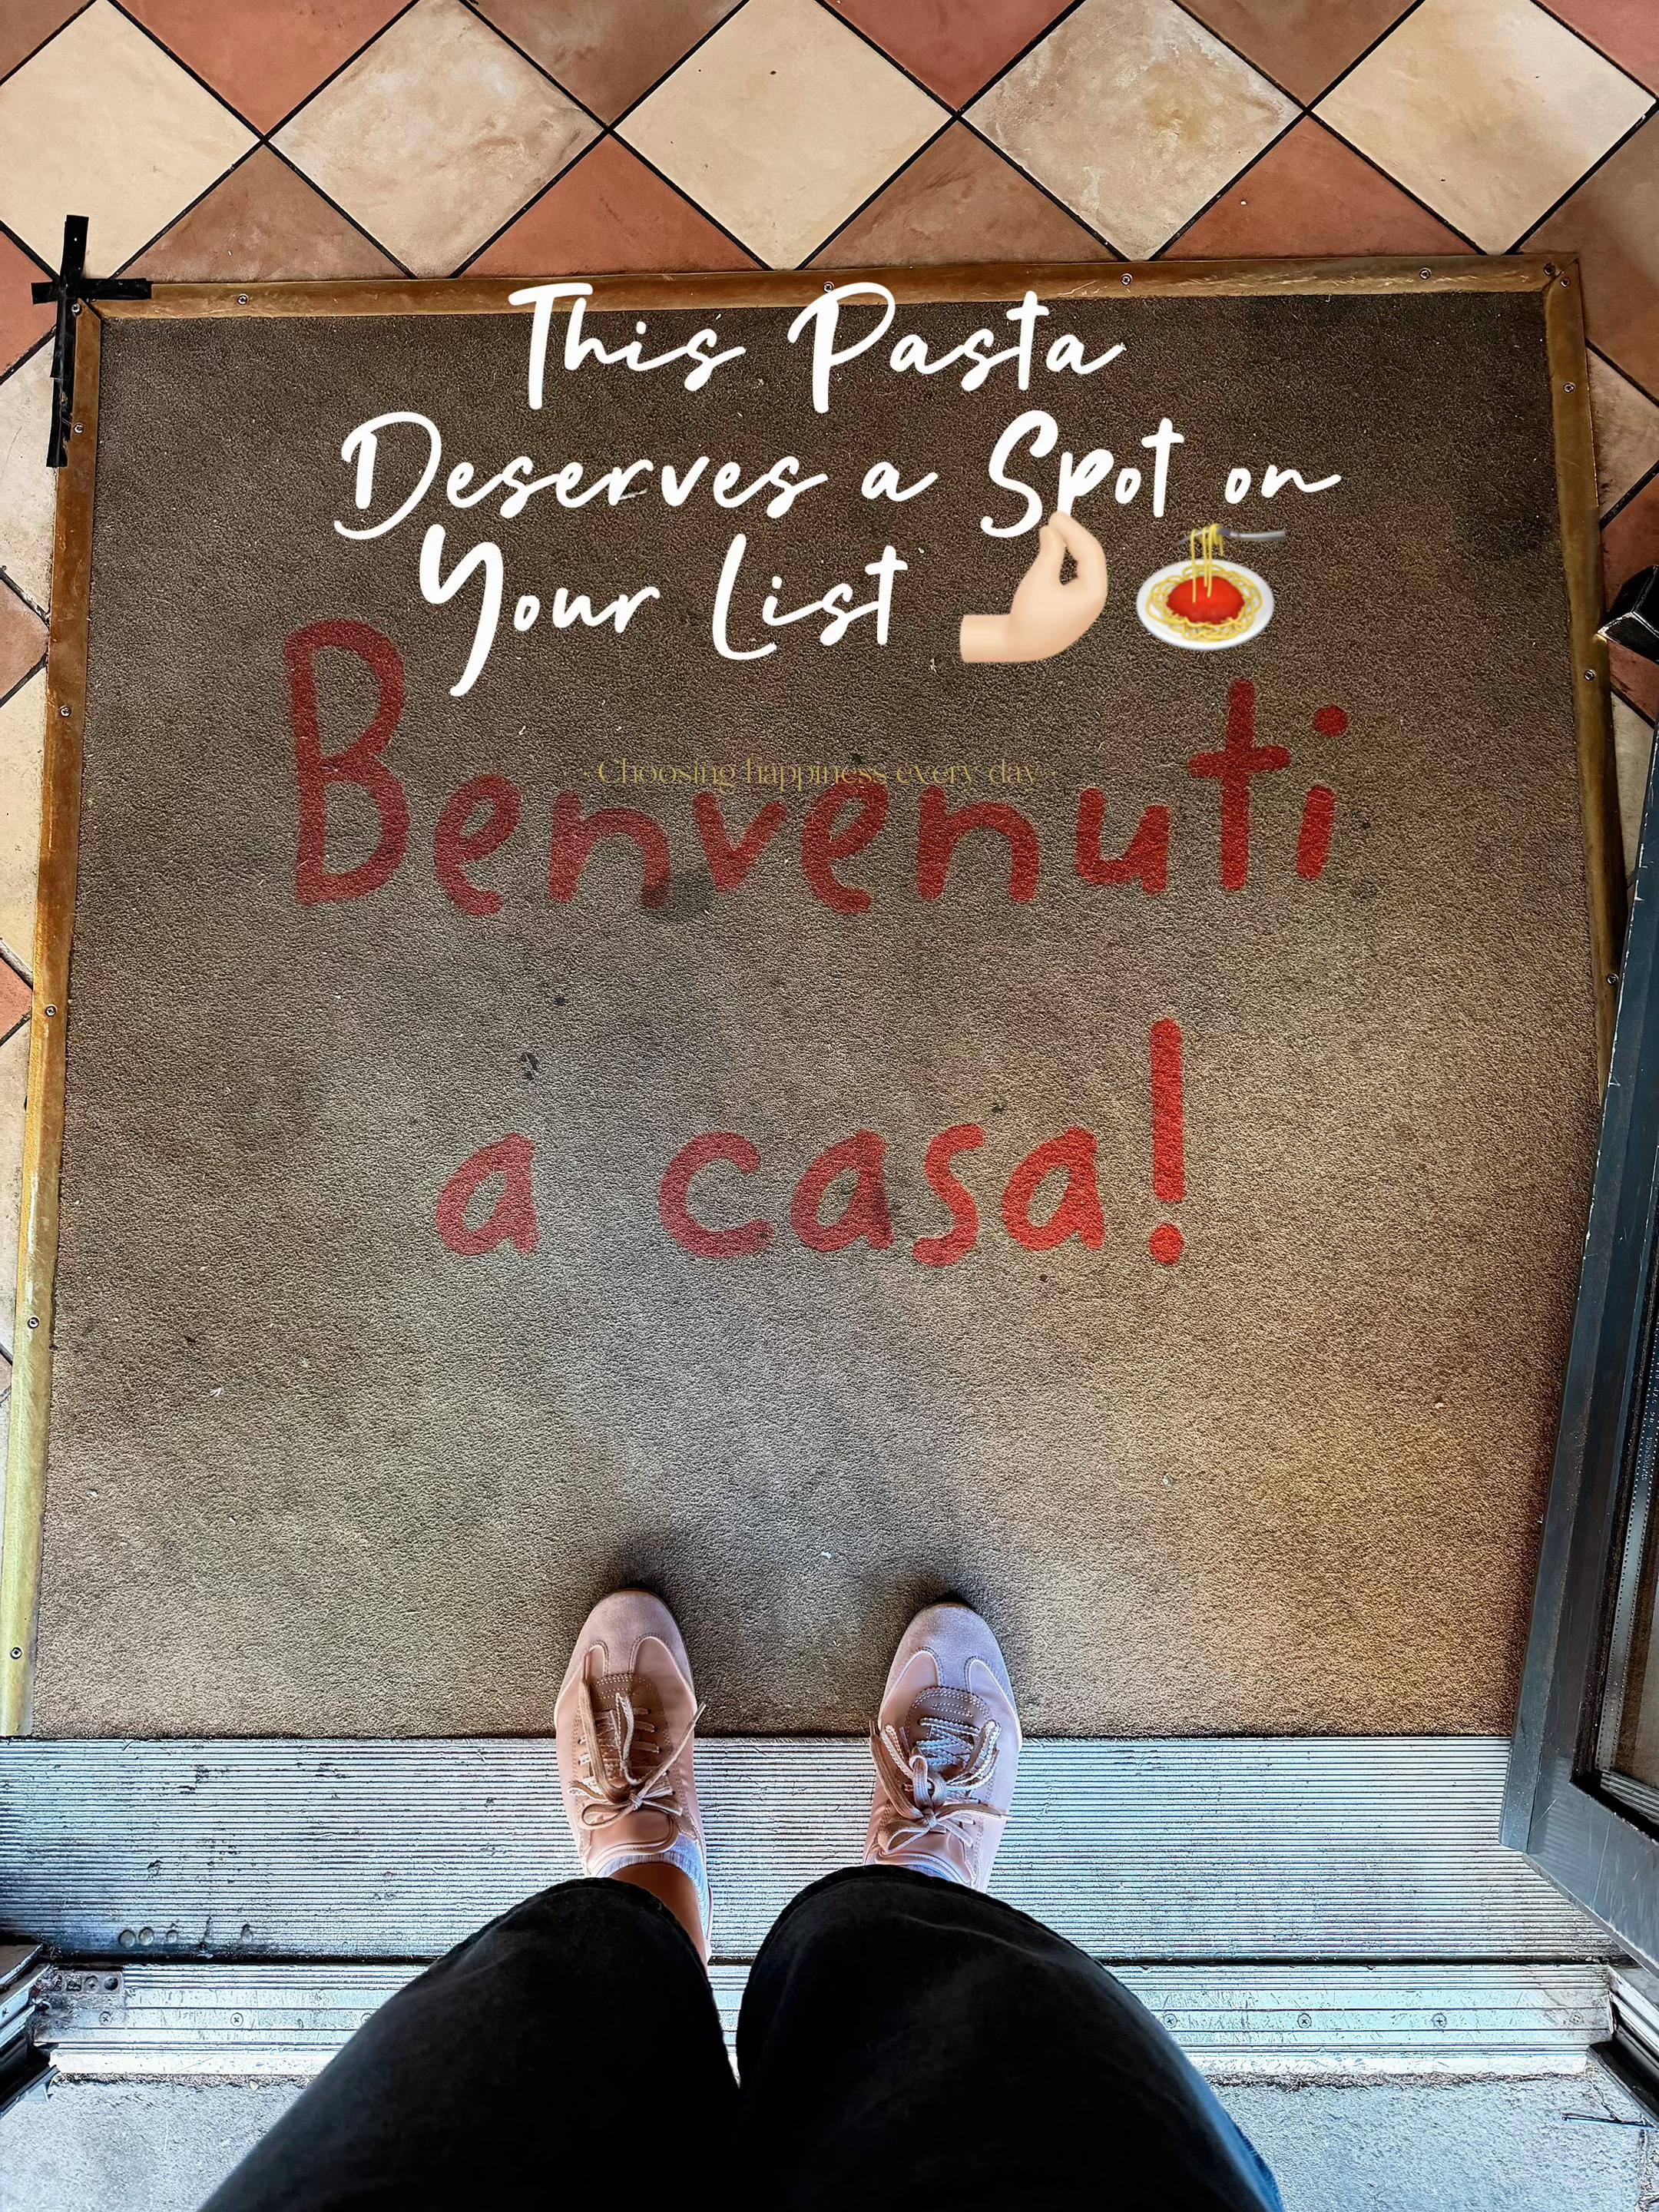 This Pasta
Deserves a Spot on
Your List 🤌🏻 🍝
- Choosing happiness every day
Benvenuti
a casa!